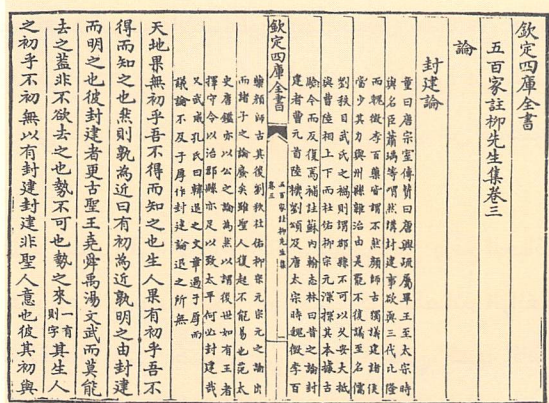 欽定四庫全書
五百家註柳先生集卷三
論
封建論
童曰唐宗室傳賛曰唐興䟽屬畢王至太宗時
與名臣蕭瑀等喟然講封建事欲與三代比隆
而魏徴李百藥皆謂不然顔師古獨議建諸侯
當少其力與州縣雜治由是罷不復議至名儒
劉秩目武氏之禍則謂郡縣不可以久安大抵
與曹陸相上下而杜佑柳宗元深探其本據古
驗今而反復焉補註蘇内翰志林曰昔之論封
建者曹元首陸機劉頌及唐太宗時魏徴李百
欽定四庫全書
五百家註柳先生集
卷三
藥顔師古其後劉秩杜佑柳宗元宗元之論出
而諸子之論廢矣雖聖人復起不能易也范太
史唐鑑亦以公之論為然以謂後世如有王者
擇守令以治郡縣亦足以致太平何必封建哉
又武成孔氏曰韓退之文章過子厚而
議論不及子厚作封建論退之所無
天地果無初乎吾不得而知之也生人果有初乎吾不
得而知之也然則孰為近曰有初為近孰明之由封建
而明之也彼封建者更古聖王堯舜禹湯文武而莫能
去之葢非不欲去之也勢不可也勢之來一有則字其生人
之初乎不初無以有封建封建非聖人意也彼其初與